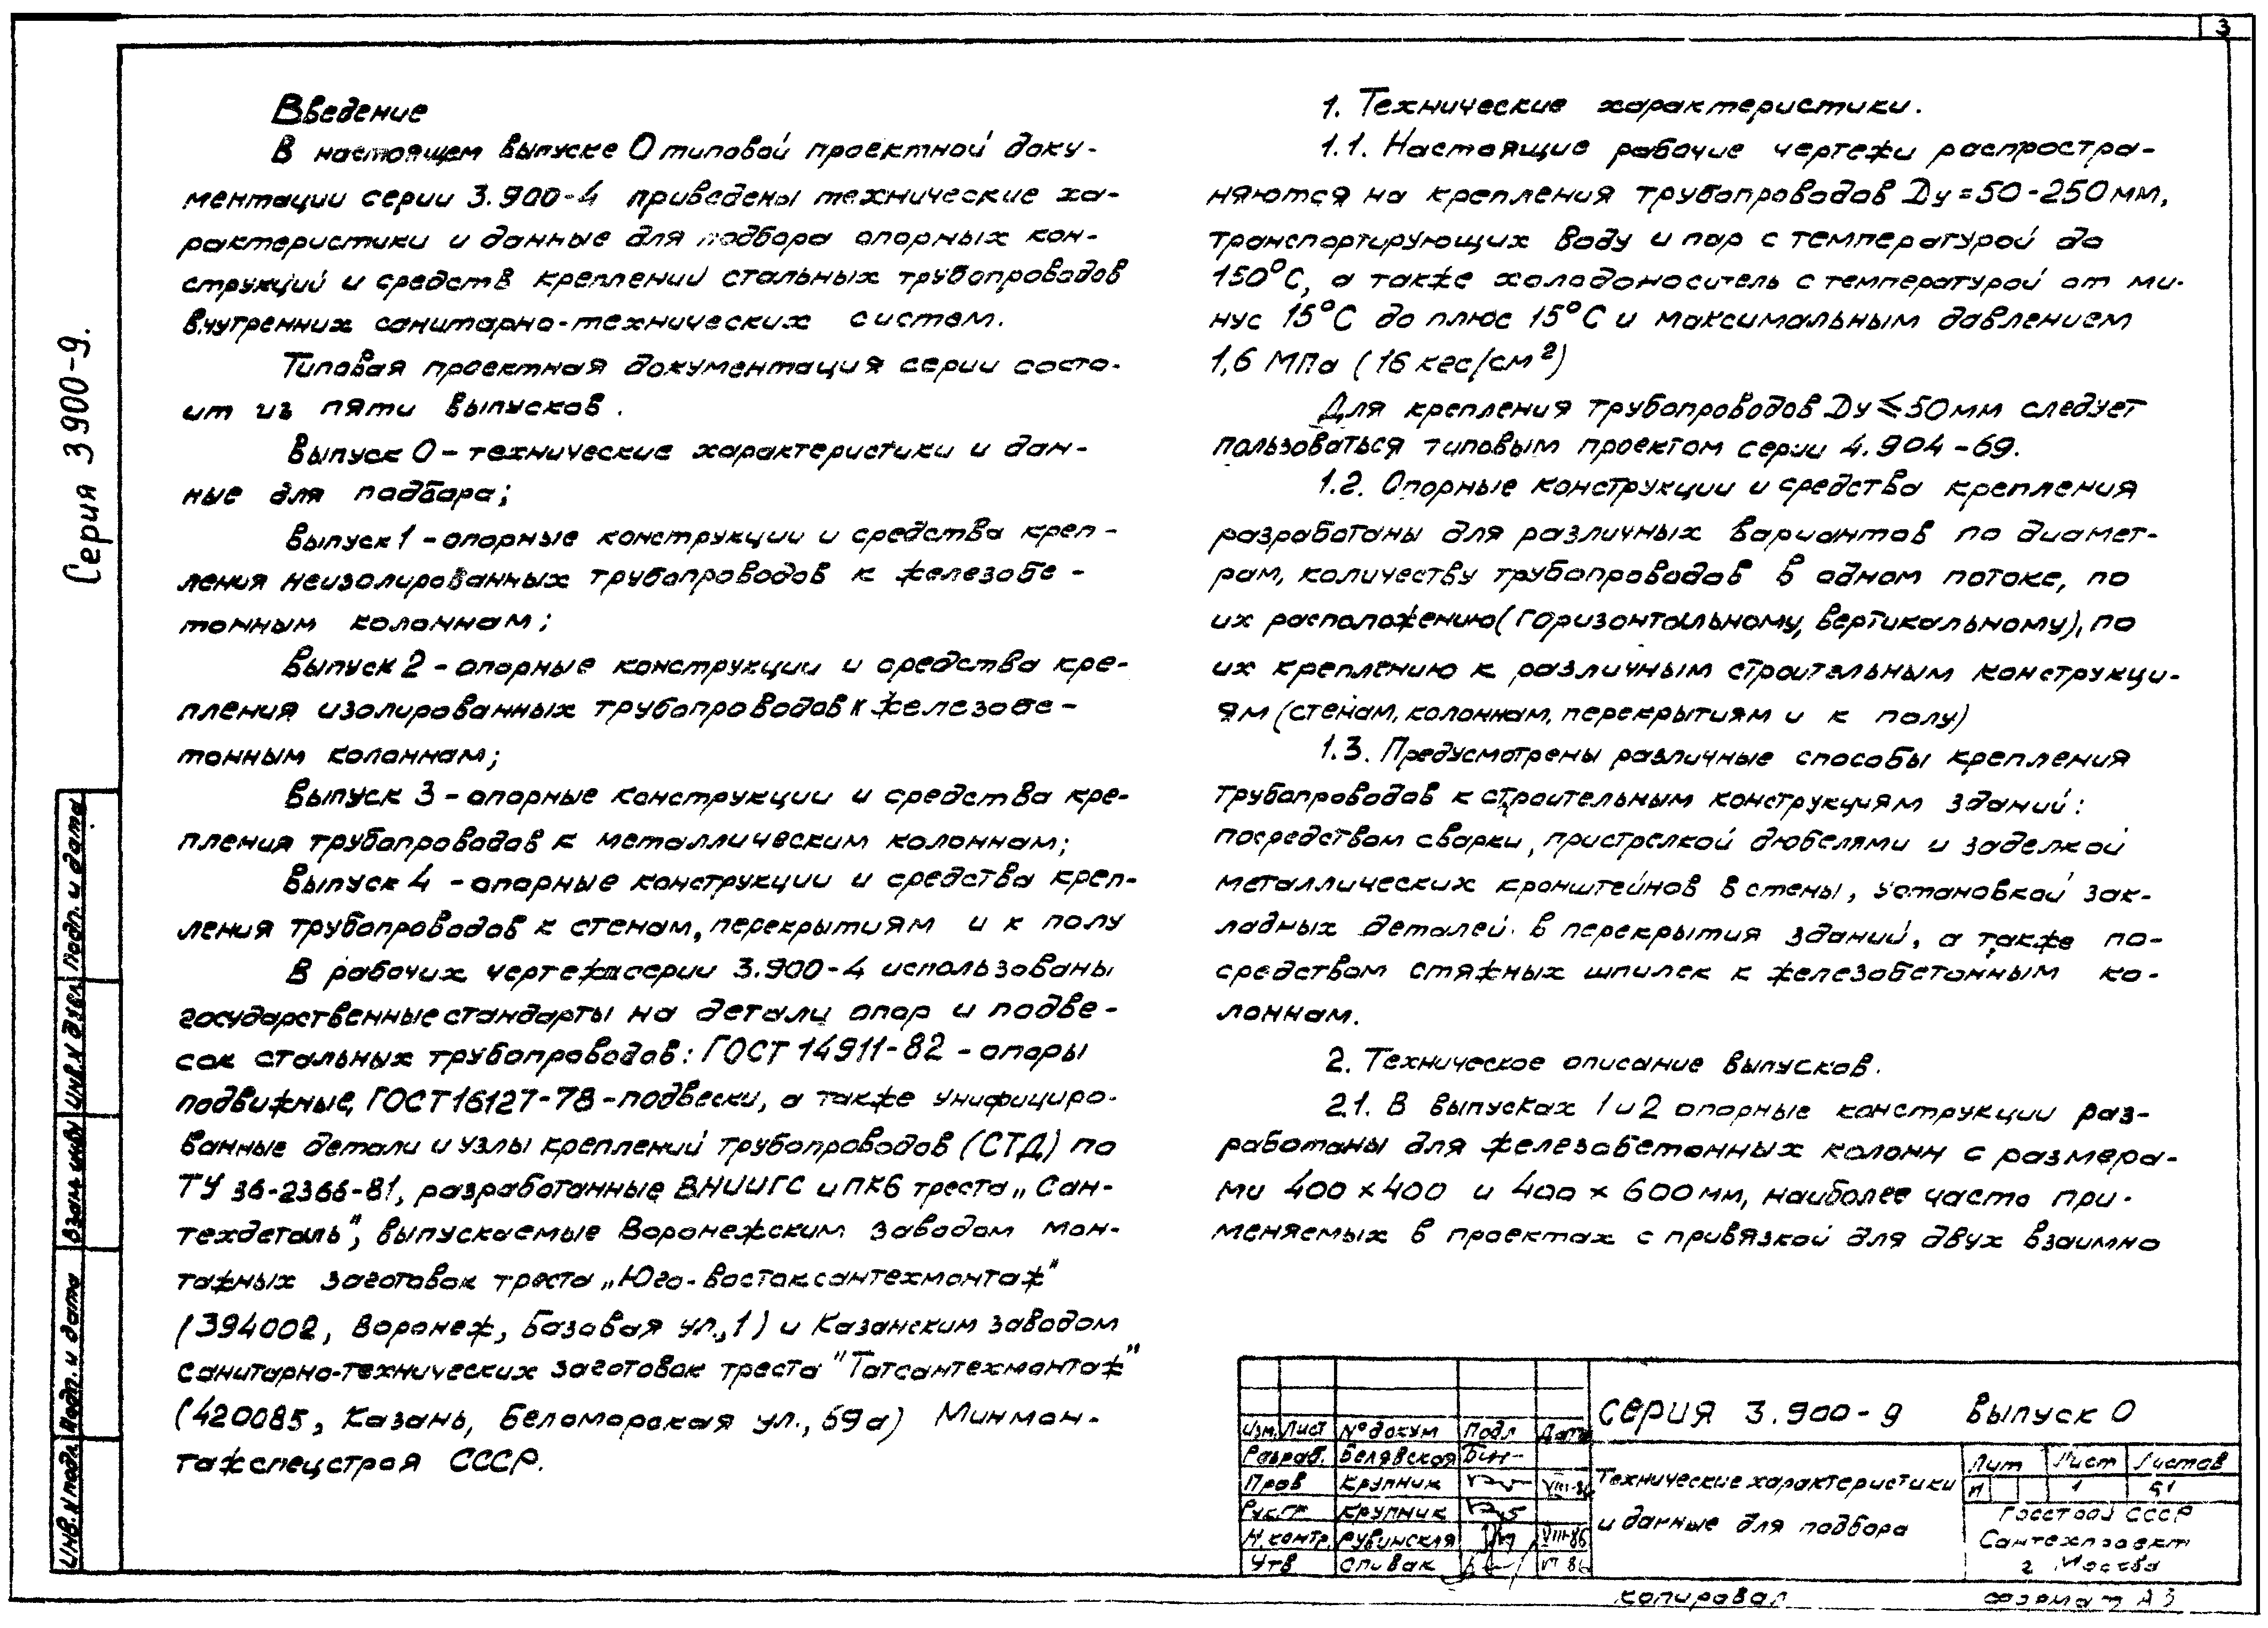 3
Серия 3.900-9.
Введение
В настоящем выпуске 0 типовой проектной доку-
ментации серии 3.900-4 приведены технические ха-
рактеристики и данные для подбора опорных кон-
струкций и средств креплений стальных трубопроводов
внутренних санитарно-технических систем.
Типовая проектная документация серии состо-
ит из пяти выпусков.
Выпуск 0 - технические характеристики и дан-
ные для подбора;
Выпуск 1 - опорные конструкции и средства креп-
ления неизолированных трубопроводов к железобе-
тонным колоннам;
Выпуск 2 - опорные конструкции и средства кре-
пления изолированных трубопроводов к железобе-
тонным колоннам;
Выпуск 3 - опорные конструкции и средства кре-
пления трубопроводов к металлическим колоннам;
Выпуск 4 - опорные конструкции и средства креп-
ления трубопроводов к стенам, перекрытиям и к полу
В рабочих чертежах серии 3.900-4 использованы
государственные стандарты на детали опор и подве-
сок стальных трубопроводов: ГОСТ 14911-82 - опоры
подвижные, ГОСТ 16127-78 - подвески, а также унифициро-
ванные детали и узлы креплений трубопроводов (СТД) по
ТУ 36-2366-81, разработанные ВНИИГС и ПКБ треста „Сан-
техдеталь", выпускаемые Воронежским заводом мон-
тажных заготовок треста „Юго-востоксантехмонтаж"
(394002, Воронеж, Базовая ул., 1) и Казанским заводом
санитарно-технических заготовок треста "Татсантехмонтаж"
(420085, Казань, Беломорская ул., 69а) Минмон-
тажспецстроя СССР.
1. Технические характеристики.
1.1. Настоящие рабочие чертежи распростра-
няются на крепления трубопроводов Ду=50-250мм,
транспортирующих воду и пар с температурой до
150°С, а также холодоноситель с температурой от ми-
нус 15°С до плюс 15°С и максимальным давлением
1,6 МПа (16 кгс/см²)
Для крепления трубопроводов Ду≤50мм следует
пользоваться типовым проектом серии 4.904-69.
1.2. Опорные конструкции и средства крепления
разработаны для различных вариантов по диамет-
рам, количеству трубопроводов в одном потоке, по
их расположению (горизонтальному, вертикальному), по
их креплению к различным строительным конструкци-
ям (стенам, колоннам, перекрытиям и к полу)
1.3. Предусмотрены различные способы крепления
трубопроводов к строительным конструкциям зданий:
посредством сварки, пристрелкой дюбелями и заделкой
металлических кронштейнов в стены, установкой зак-
ладных деталей в перекрытия зданий, а также по-
средством стяжных шпилек к железобетонным ко-
лоннам.
2. Техническое описание выпусков.
2.1. В выпусках 1 и 2 опорные конструкции раз-
работаны для железобетонных колонн с размера-
ми 400×400 и 400×600мм, наиболее часто при-
меняемых в проектах с привязкой для двух взаимно
Инв.N подл. Подп. и дата Взам. инв.N Инв.N дубл. Подп. и дата
Изм. Лист №докум Подп Дата
Разраб. Белявская
Пров Крупник VIII-86
Рук.гр Крупник
Н.контр. Рубинская VIII-86
Утв Спивак
серия 3.900-9 выпуск 0
Технические характеристики
и данные для подбора
Лит Лист Листов
1 51
Госстрой СССР
Сантехпроект
г Москва
копировал Формат А3